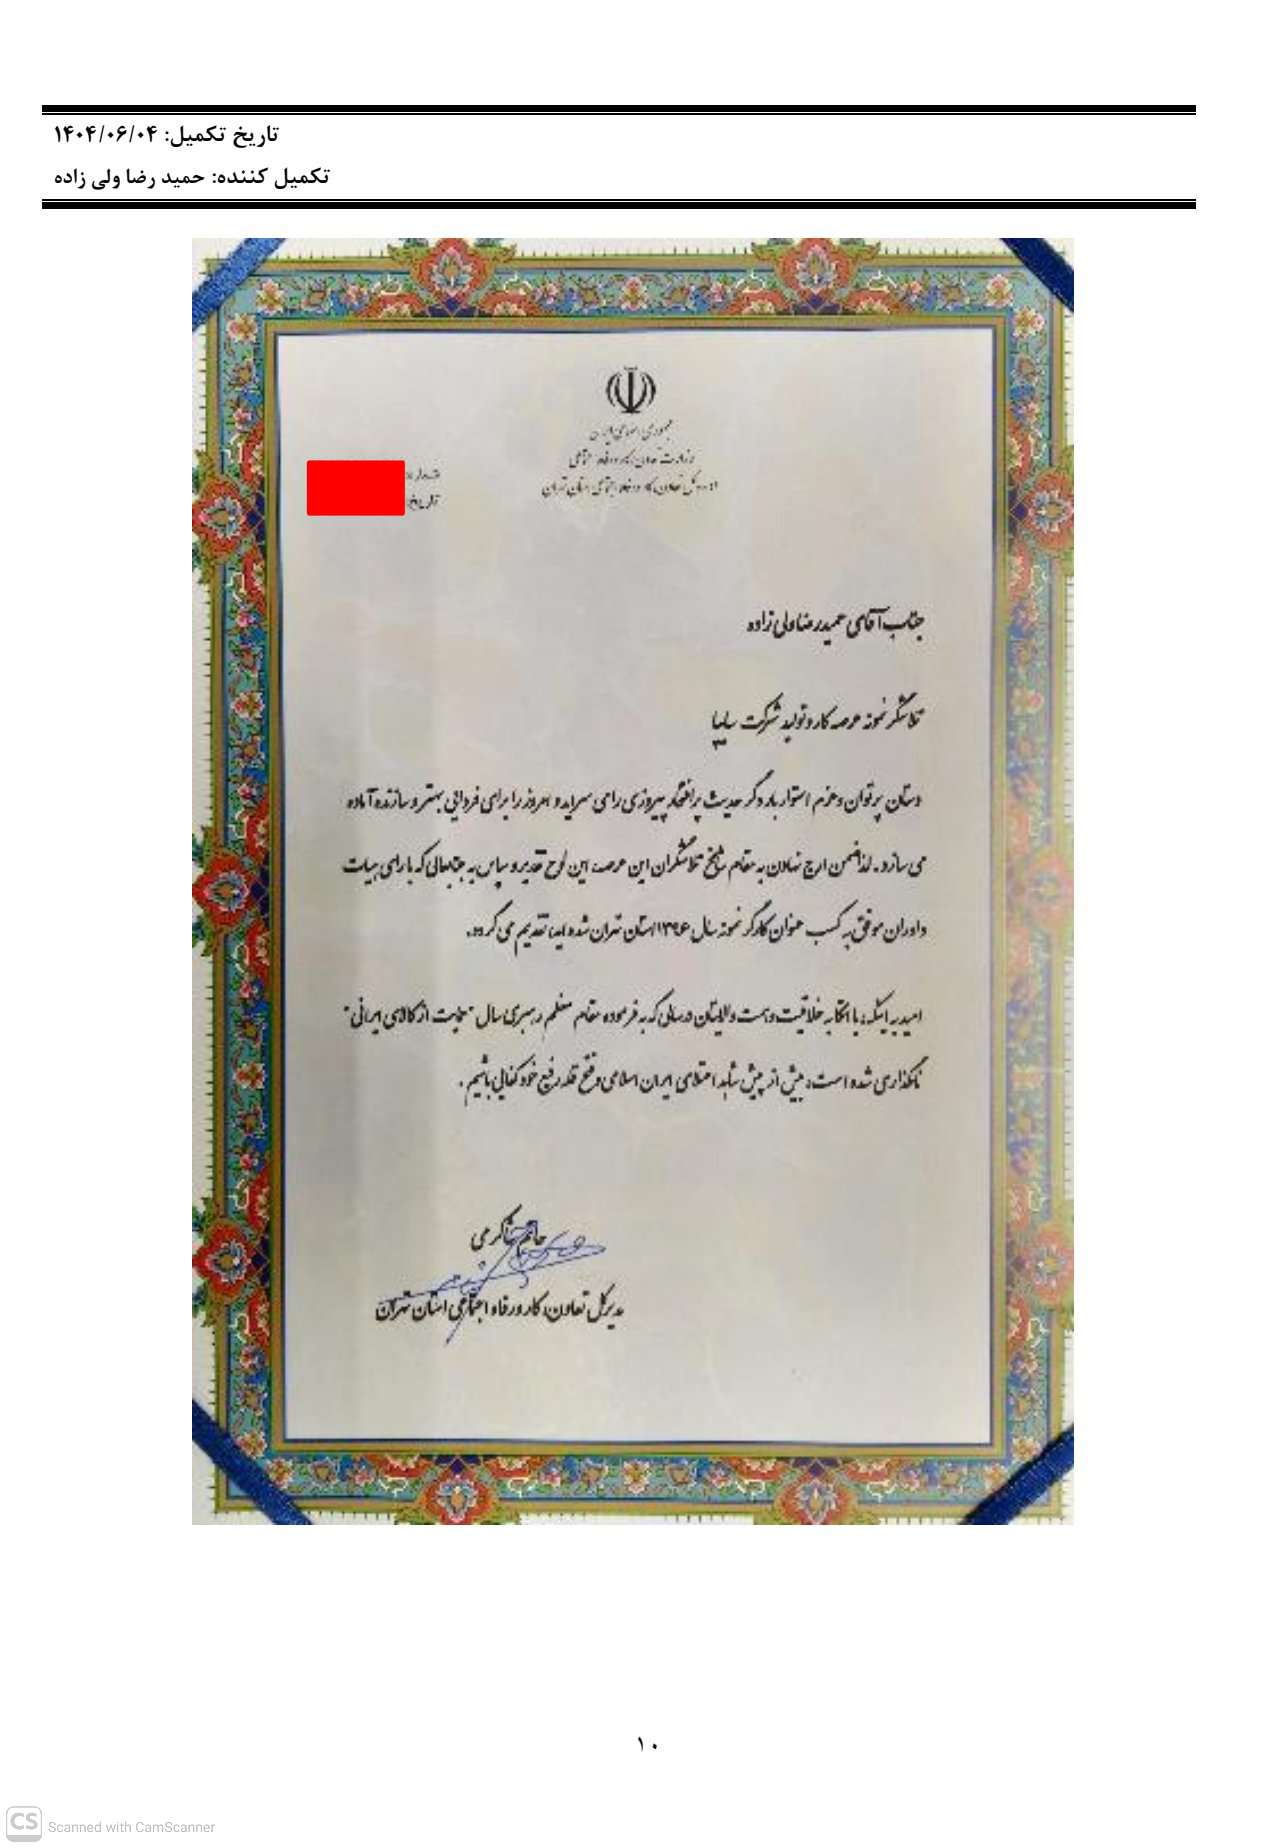 تاریخ تکمیل: ۱۴۰۴/۰۶/۰۴
تکمیل کننده: حمید رضا ولی زاده
جمهوری اسلامی ایران
وزارت تعاون، کار و رفاه اجتماعی
اداره کل تعاون، کار و رفاه اجتماعی استان تهران
شماره:
تاریخ:
جناب آقای حمیدرضا ولی زاده
تلاشگر نمونه عرصه کار و تولید شرکت سایپا
دستان پرتوان و عزم استوار بار دگر حدیث پرافتخار پیروزی را می سراید و امروز را برای فردایی بهتر و سازنده آماده
می سازد. لذا ضمن ارج نهادن به مقام شامخ تلاشگران این عرصه، این لوح تقدیر و سپاس به جنابعالی که با رای هیات
داوران موفق به کسب عنوان کارگر نمونه سال ۱۳۹۶ استان تهران شده اید، تقدیم می گردد.
امید به اینکه، با اتکا به خلاقیت و همت والایتان در سالی که به فرموده مقام معظم رهبری سال "حمایت از کالای ایرانی"
نامگذاری شده است، بیش از پیش شاهد اعتلای ایران اسلامی و فتح قله رفیع خودکفایی باشیم.
حاتم شاکرمی
مدیرکل تعاون، کار و رفاه اجتماعی استان تهران
۱۰
CS Scanned with CamScanner